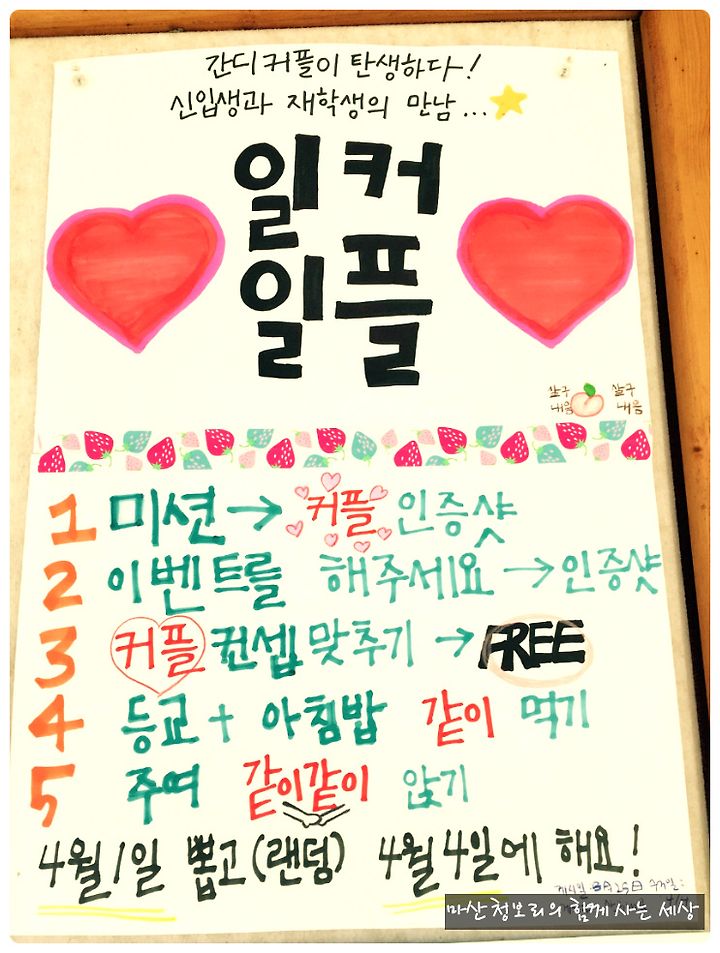 간디커플이 탄생하다!
신입생과 재학생의 만남...
일커
일플
살구 살구
내음 내음
1 미션→ 커플 인증샷
2 이벤트를 해주세요 → 인증샷
3 커플 컨셉 맞추기 → FREE
4 등교 + 아침밥 같이 먹기
5 주여 같이같이 앉기
4월1일 뽑고(랜덤) 4월4일에 해요!
마산 청보리의 함께 사는 세상